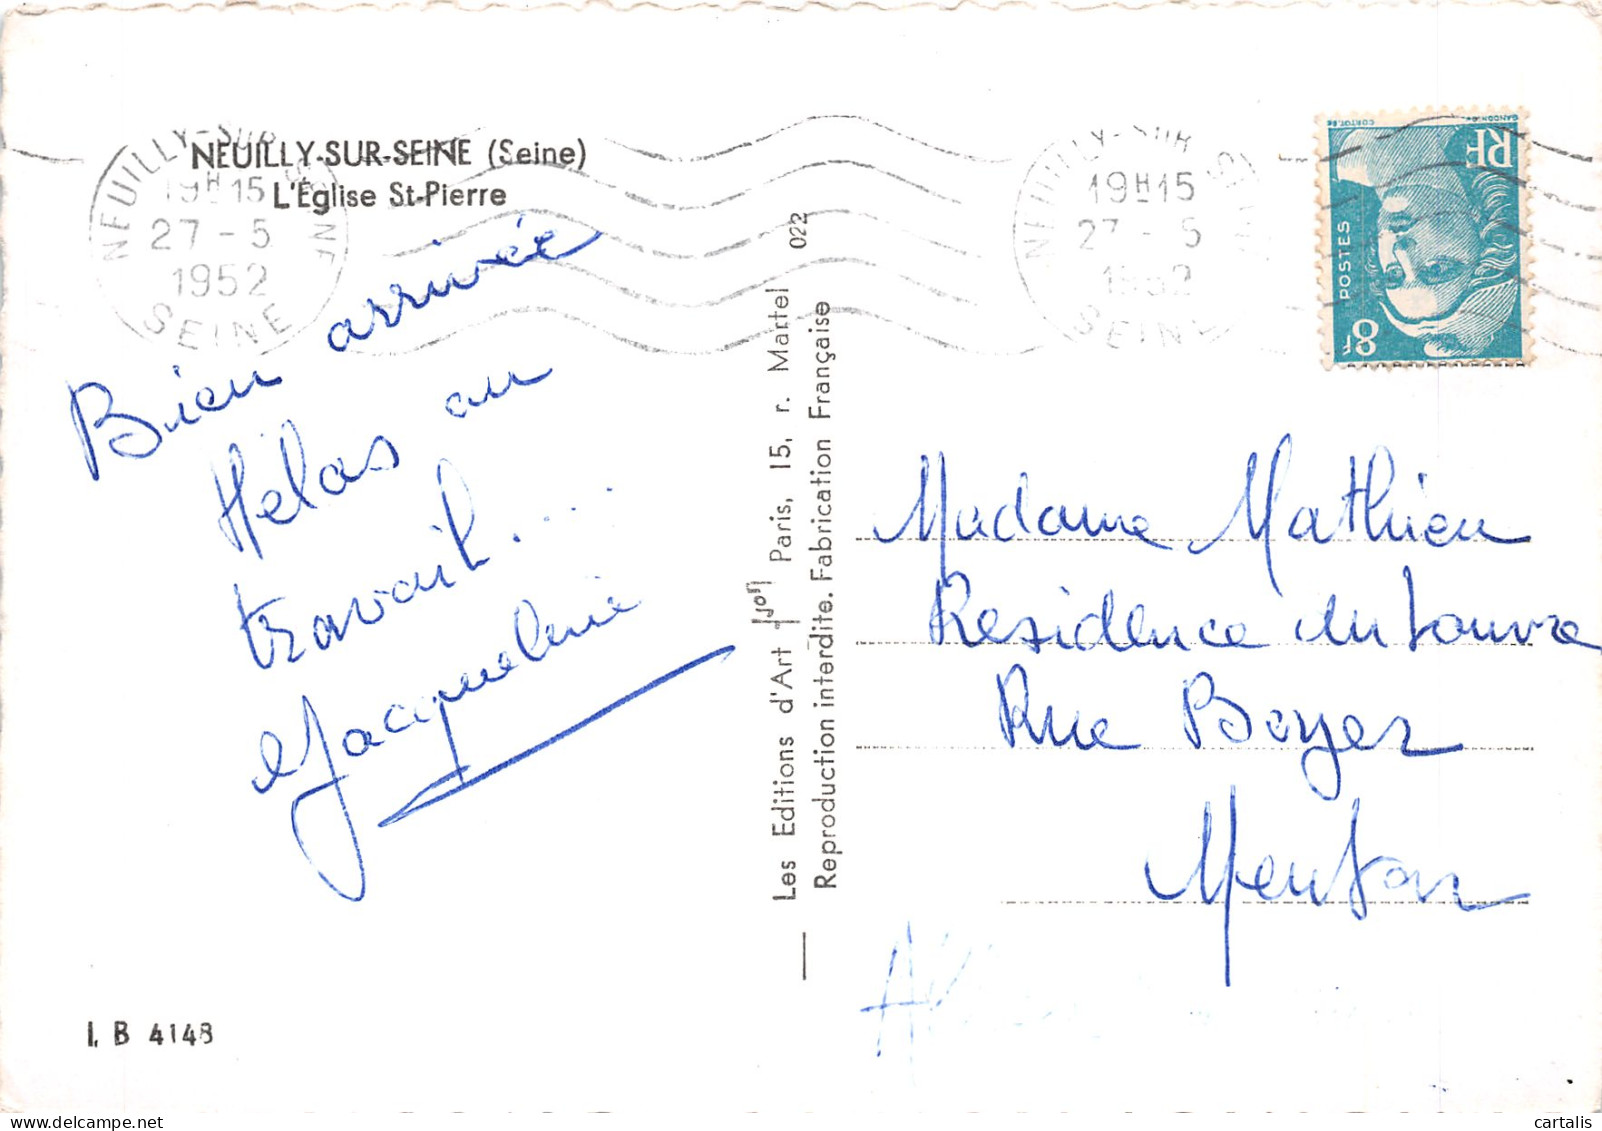 NEUILLY-SUR-SEINE (Seine)
L'Église St-Pierre
NEUILLY-SUR-SEINE
19H15
27-5
1952
SEINE
Bien arrivée
Hélas au
travail....
Jacqueline
Les Editions d'Art Yvon Paris, 15, r. Martel 022
Reproduction interdite. Fabrication Française
NEUILLY-SUR-SEINE
19H15
27-5
1952
SEINE
RF
POSTES
8F
GANDON
CORTOT
Madame Mathieu
Residence du Louvre
Rue Boyer
Menton
I. B 4148
cartalis
delcampe.net